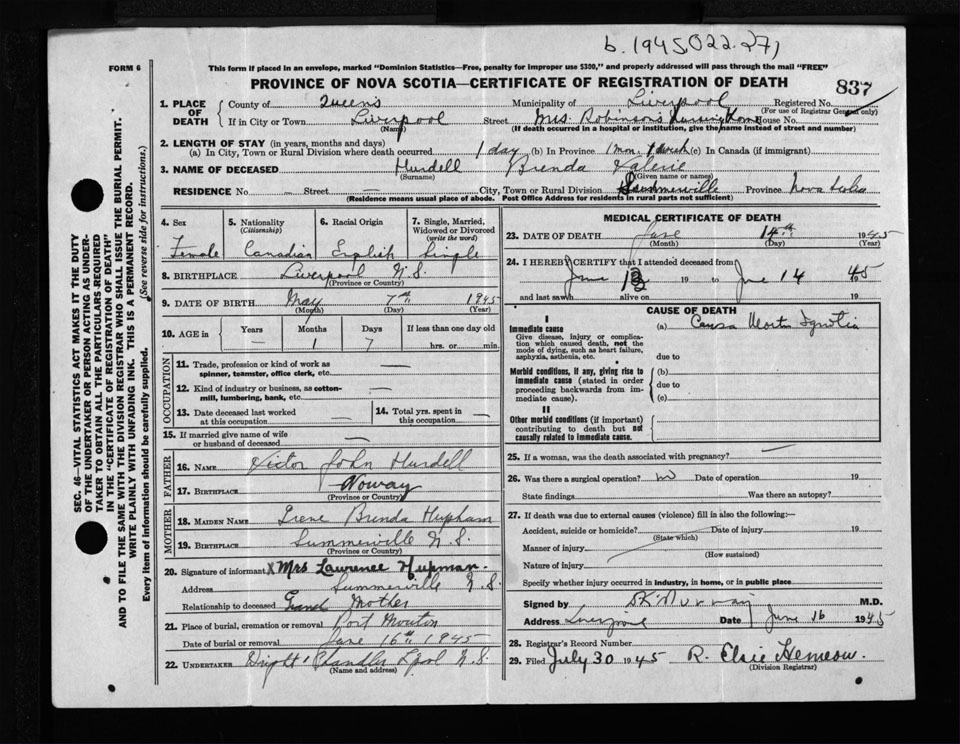 b. 1945022.271
FORM 6
This form if placed in an envelope, marked "Dominion Statistics—Free, penalty for improper use $300," and properly addressed will pass through the mail "FREE"
PROVINCE OF NOVA SCOTIA—CERTIFICATE OF REGISTRATION OF DEATH
837
1. PLACE OF DEATH
County of Queens Municipality of Liverpool Registered No.
(For use of Registrar General only)
If in City or Town Liverpool Street Mrs. Robinson's Nursing Home House No.
(Name) (If death occurred in a hospital or institution, give the name instead of street and number)
2. LENGTH OF STAY (in years, months and days)
(a) In City, Town or Rural Division where death occurred 1 day (b) In Province 1 mon. 1 week (c) In Canada (if immigrant)
3. NAME OF DECEASED Hurdell Brenda Valerie
(Surname) (Given name or names)
RESIDENCE No. — Street — City, Town or Rural Division Summerville Province Nova Scotia
(Residence means usual place of abode. Post Office Address for residents in rural parts not sufficient)
4. Sex
Female
5. Nationality (Citizenship)
Canadian
6. Racial Origin
English
7. Single, Married, Widowed or Divorced (write the word)
Single
8. BIRTHPLACE Liverpool N.S.
(Province or Country)
9. DATE OF BIRTH May 7th 1945
(Month) (Day) (Year)
10. AGE in Years Months Days If less than one day old
— 1 7 hrs. or min.
OCCUPATION
11. Trade, profession or kind of work as spinner, teamster, office clerk, etc. —
12. Kind of industry or business, as cotton-mill, lumbering, bank, etc. —
13. Date deceased last worked at this occupation —
14. Total yrs. spent in this occupation —
15. If married give name of wife or husband of deceased —
FATHER
16. NAME Victor John Hurdell
17. BIRTHPLACE Noway
(Province or Country)
MOTHER
18. MAIDEN NAME Irene Brenda Hupham
19. BIRTHPLACE Summerville N.S.
(Province or Country)
20. Signature of informant X Mrs Lawrence Hupman.
Address Summerville N.S.
Relationship to deceased Grand Mother
21. Place of burial, cremation or removal Port Mouton
Date of burial or removal June 16th 1945
22. UNDERTAKER Dright & Chandler Lpool N.S.
(Name and address)
MEDICAL CERTIFICATE OF DEATH
23. DATE OF DEATH June 14th 1945
(Month) (Day) (Year)
24. I HEREBY CERTIFY that I attended deceased from
June 13 19 to June 14 45
and last saw h alive on 19
CAUSE OF DEATH
I
Immediate cause
Give disease, injury or complication which caused death, not the mode of dying, such as heart failure, asphyxia, asthenia, etc.
(a) Causa Mortis Ignotia
due to
Morbid conditions, if any, giving rise to immediate cause (stated in order proceeding backwards from immediate cause).
(b)
due to
(c)
II
Other morbid conditions (if important) contributing to death but not causally related to immediate cause.
25. If a woman, was the death associated with pregnancy?
26. Was there a surgical operation? no Date of operation 19
State findings Was there an autopsy?
27. If death was due to external causes (violence) fill in also the following:—
Accident, suicide or homicide? Date of injury 19
(State which)
Manner of injury
(How sustained)
Nature of injury
Specify whether injury occurred in industry, in home, or in public place
Signed by M.D.
Address Liverpool Date June 16 1945
28. Registrar's Record Number
29. Filed July 30 1945 R. Elsie Hemeow.
(Division Registrar)
SEC. 46—VITAL STATISTICS ACT MAKES IT THE DUTY
OF THE UNDERTAKER OR PERSON ACTING AS UNDER-
TAKER TO OBTAIN ALL THE PARTICULARS REQUIRED
IN THE "CERTIFICATE OF REGISTRATION OF DEATH"
AND TO FILE THE SAME WITH THE DIVISION REGISTRAR WHO SHALL ISSUE THE BURIAL PERMIT.
WRITE PLAINLY WITH UNFADING INK. THIS IS A PERMANENT RECORD.
Every item of information should be carefully supplied. (See reverse side for instructions.)